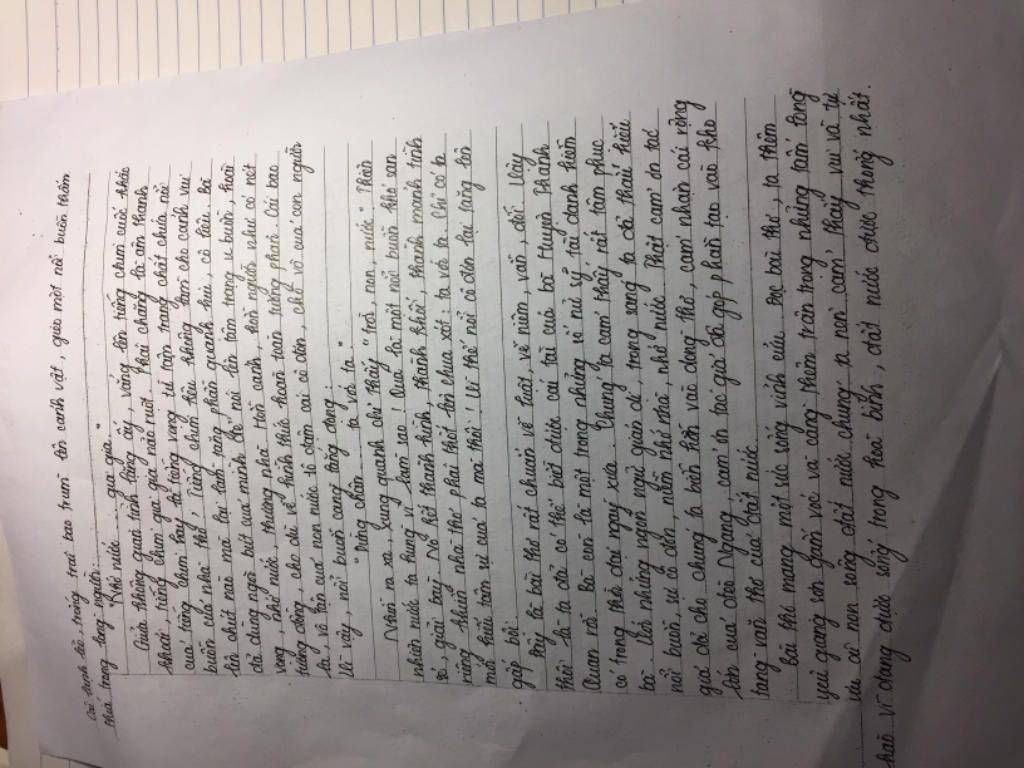 Cái tĩnh lại, trống trải bao trùm lên cảnh vật, gieo một nỗi buồn thấm
thía trong lòng người:
"Nhớ nước gia gia."
Giữa không gian tĩnh lặng ấy, vang lên tiếng chim cuốc khắc
khoải, tiếng chim gia gia não nuột. Phải chăng là âm thanh
của tiếng chim hay là tiếng vang từ tận trang chất chứa nỗi
buồn của nhà thơ. Tiếng chim kêu không làm cho cảnh vui
lên chút nào mà lại làm tăng phần quạnh hiu, cô liêu. Bà
đã dùng ngòi bút của mình để nói lên tâm trạng u buồn, hoài
vọng, nhớ nước, thương nhà. Hồn cảnh, hồn người như có nét
tương đồng, cho dù về hình thức hoàn toàn tương phản. Cái bao
la, vô tận của non nước tô đậm cái cô đơn, nhỏ bé của con người
Vì vậy, nỗi buồn càng tăng đọng:
"Dừng chân ta với ta."
Nhìn ra xa, xung quanh chỉ thấy "trời, non, nước". Thiên
nhiên nước ta hùng vĩ làm sao! Quả là một nỗi buồn khó san
sẻ, giãi bày. Nó kết thành hình, thành khối, thành mảnh tình
riêng khiến nhà thơ phải thốt lên chua xót: ta với ta. Chỉ có ta
mới hiểu tâm sự của ta mà thôi! Vì thế nỗi cô đơn lại tăng lên
gấp bội.
Đây là bài thơ rất chuẩn về luật, về niêm, vần, đối. Vậy
thôi là ta đã có thể biết được cái tài của bà Huyện Thanh
Quan rồi. Bà còn là một trong những vị nữ sỹ tài danh hiếm
có trong thời đại ngày xưa. Chúng ta cảm thấy rất tâm phục
bà. Với những ngôn ngữ giản dị, trong sáng ta đã thấu hiểu
nỗi buồn, sự cô đơn, niềm nhớ nhà, nhớ nước. Thật cảm ơn tác
giả đã cho chúng ta biến hồn vào dòng thơ, cảm nhận cái rằng
lớn của đèo Ngang, cảm ơn tác giả đã góp phần tạo vào kho
tàng văn thơ của đất nước.
Bài thơ mang một sức sống vĩnh cửu. Đọc bài thơ, ta thêm
yêu giang sơn gấm vóc và càng thêm trân trọng những tấm lòng
ưu ái non sông đất nước chúng ta nên cảm thấy vui và tự
hào vì đang được sống trong hoà bình, đất nước được thống nhất.